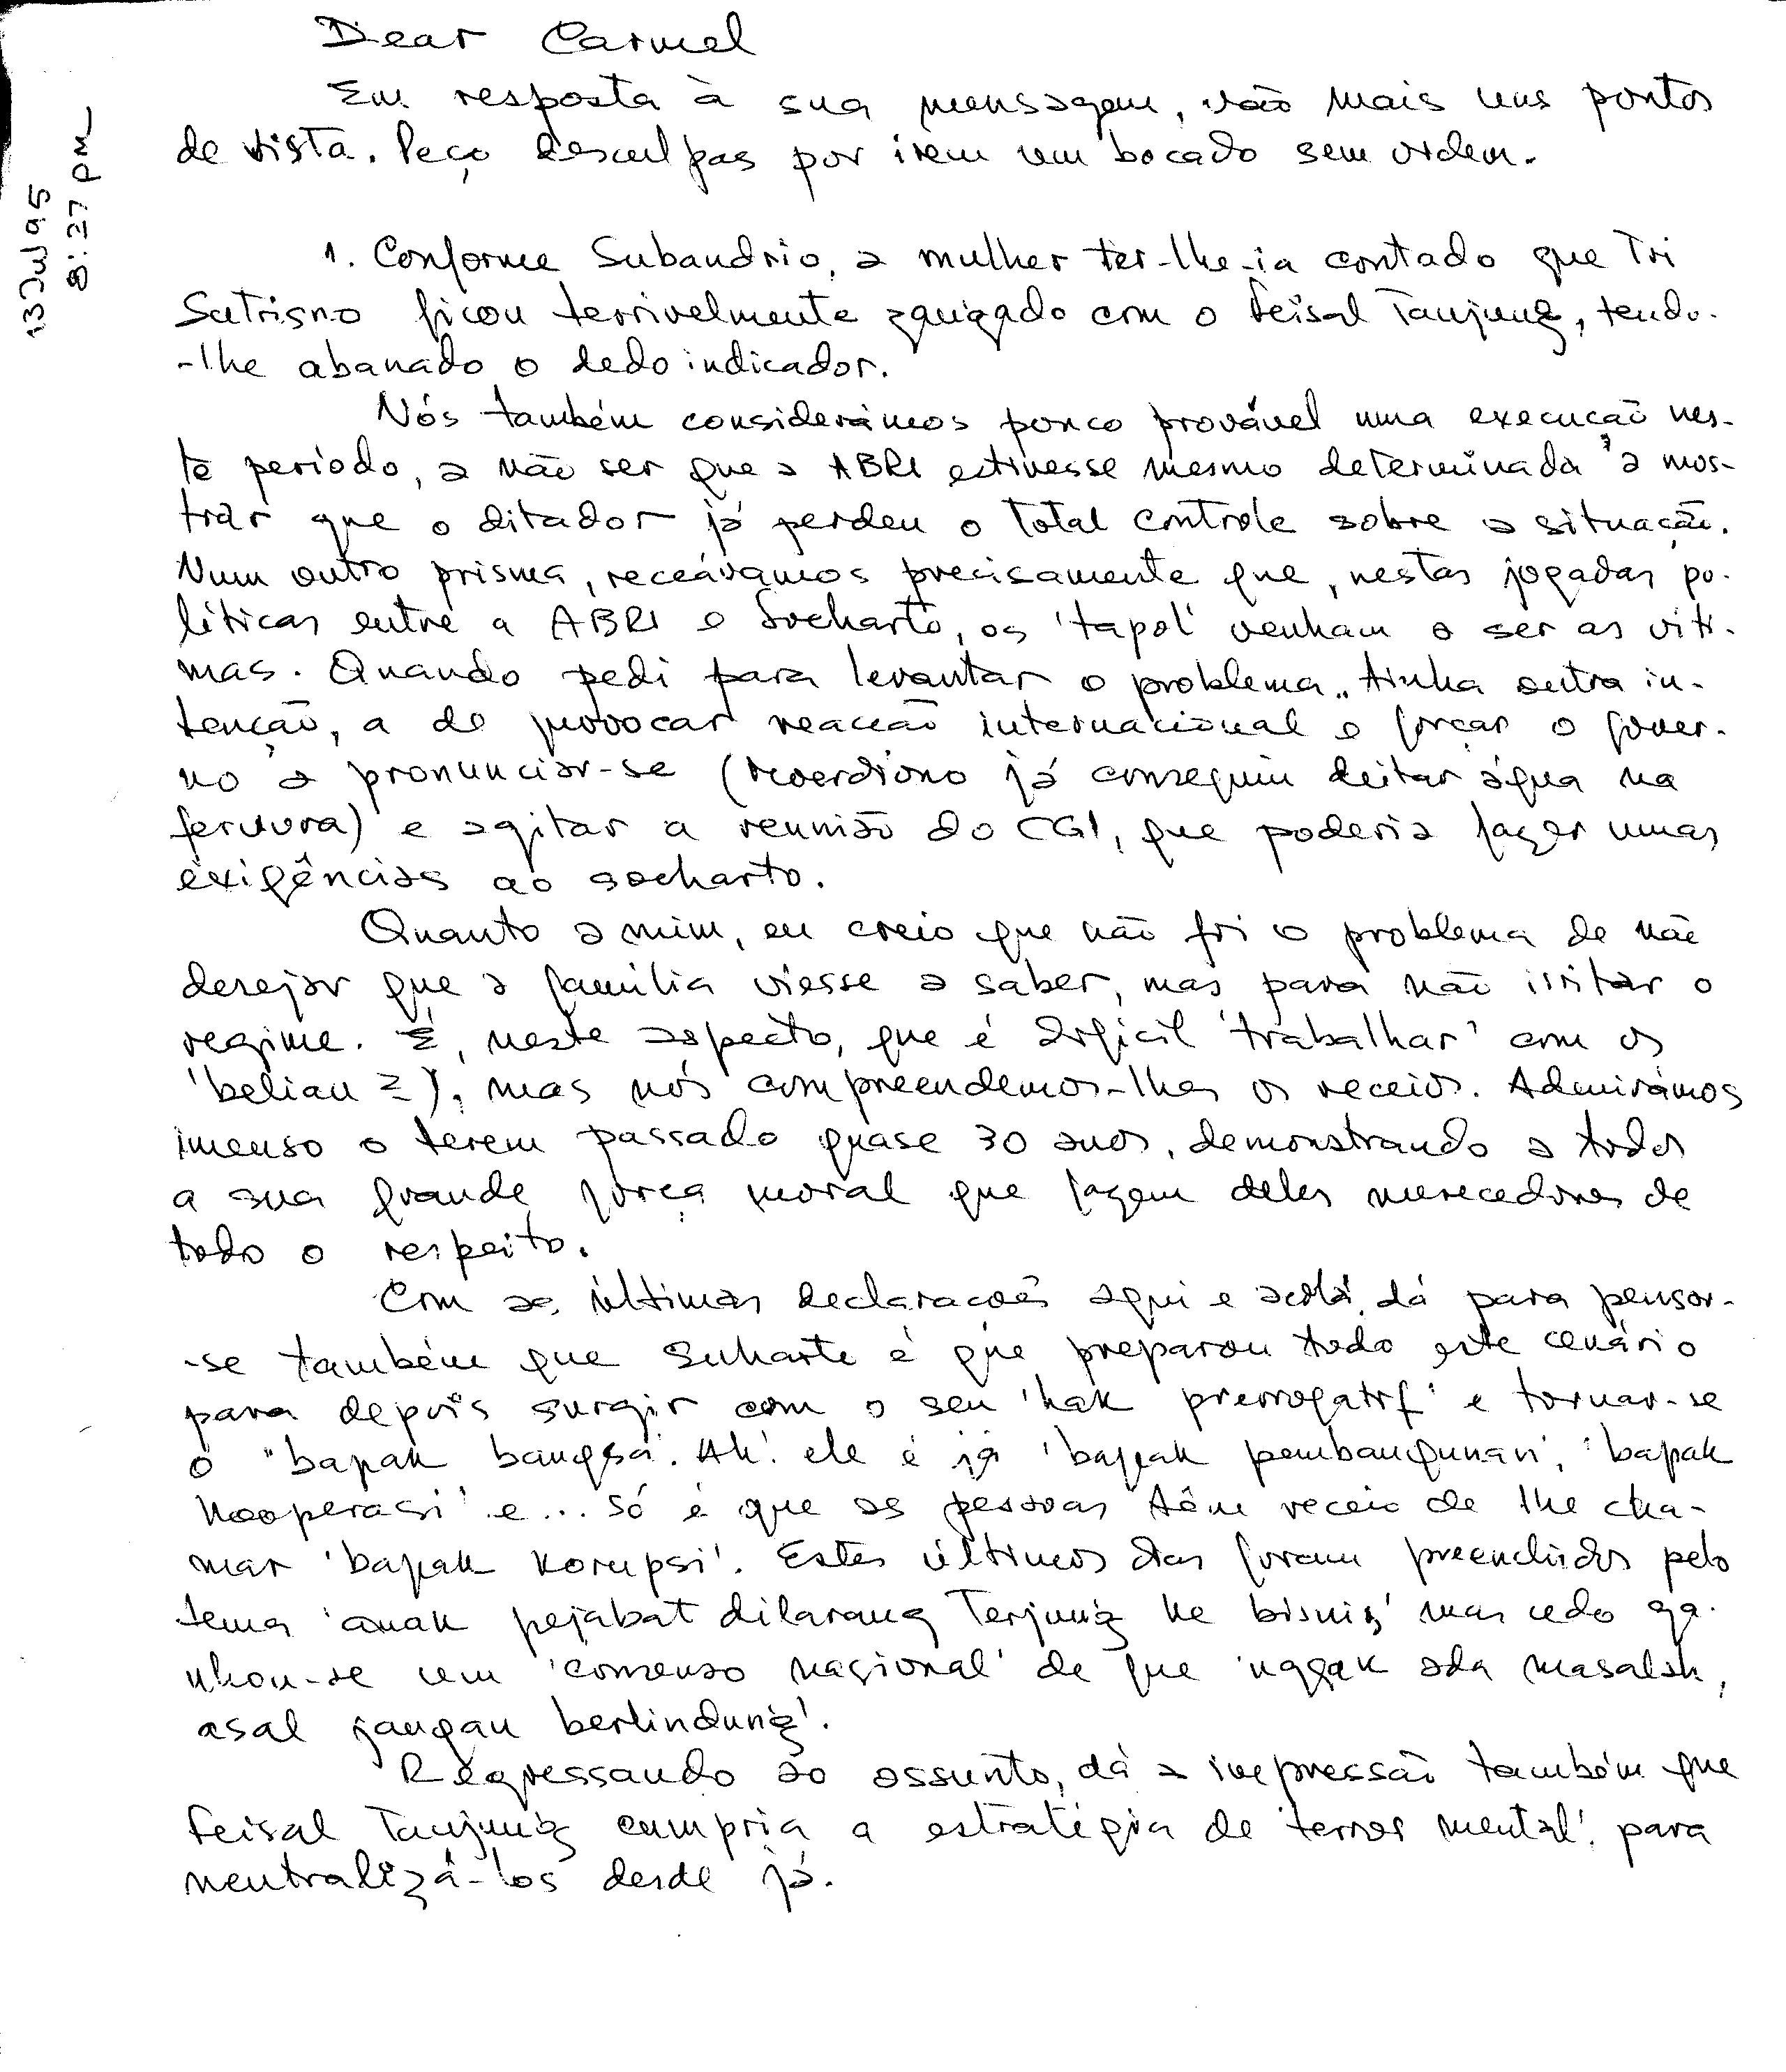 13 Jul 95
8:27 pm
Dear Carmel
Em resposta à sua mensagem, vão mais uns pontos
de vista. Peço desculpas por irem um bocado sem ordem.
1. Conforme Subandrio, a mulher ter-lhe-ia contado que Tri
Sutrisno ficou terrivelmente zangado com o Feisal Tanjung, tendo-
-lhe abanado o dedo indicador.
Nós também considerámos pouco provável uma execução nes-
te período, a não ser que a ABRI estivesse mesmo determinada a mos-
trar que o ditador já perdeu o total controle sobre a situação.
Num outro prisma, receávamos precisamente que, nestas jogadas po-
líticas entre a ABRI e Soeharto, os 'tapol' venham a ser as víti-
mas. Quando pedi para levantar o problema, tinha outra in-
tenção, a de provocar reacção internacional e forçar o gover-
no a pronunciar-se (Moerdiono já conseguiu deitar água na
fervura) e agitar a reunião do CGI, que poderia fazer umas
exigências ao Soeharto.
Quanto a mim, eu creio que não foi o problema de não
desejar que a família viesse a saber, mas para não irritar o
regime. É, neste aspecto, que é difícil 'trabalhar' com os
'beliau 2', mas nós compreendemos-lhes os receios. Admirámos
imenso o terem passado quase 30 anos, demonstrando a todos
a sua grande força moral que fazem deles merecedores de
todo o respeito.
Com as últimas declarações aqui e acolá, dá para pensar-
-se também que Suharto é que preparou todo este cenário
para depois surgir com o seu 'hak prerrogatif' e tornar-se
o 'bapak bangsa'. Ah! ele é já 'bapak pembangunan', 'bapak
kooperasi' e... só é que as pessoas têm receio de lhe cha-
mar 'bapak korupsi'. Estes últimos dias foram preenchidos pelo
tema 'anak pejabat dilarang terjung ke bisnis' mas cedo ga-
nhou-se um 'consenso nacional' de que 'nggak ada masalah,
asal jangan berlindung'.
Regressando ao assunto, dá a impressão também que
Feisal Tanjung cumpria a estratégia de 'terror mental', para
neutralizá-los desde já.